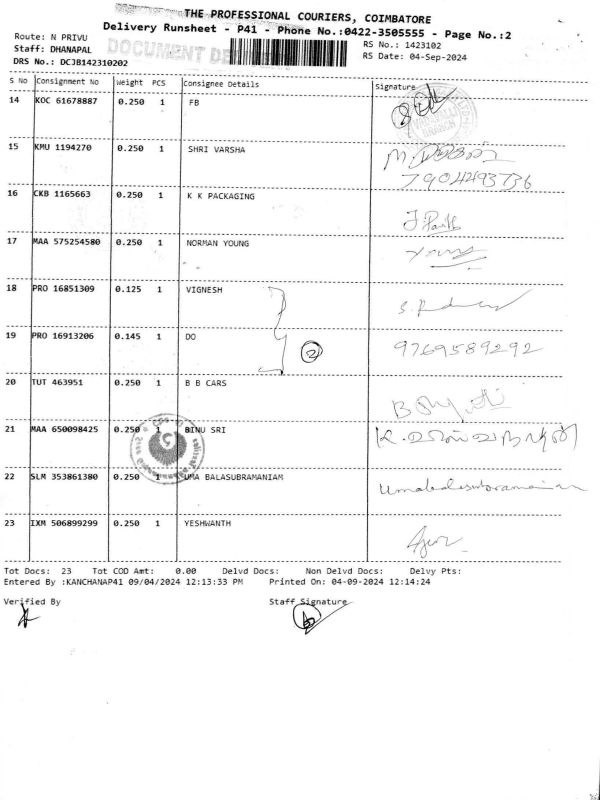 THE PROFESSIONAL COURIERS, COIMBATORE
Delivery Runsheet - P41 - Phone No.:0422-3505555 - Page No.:2
Route: N PRIVU
RS No.: 1423102
Staff: DHANAPAL
RS Date: 04-Sep-2024
DRS No.: DCJB142310202
S No Consignment No Weight PCS Consignee Details Signature
14 KOC 61678887 0.250 1 FB
15 KMU 1194270 0.250 1 SHRI VARSHA
7904493736
16 CKB 1165663 0.250 1 K K PACKAGING
17 MAA 575254580 0.250 1 NORMAN YOUNG
18 PRO 16851309 0.125 1 VIGNESH
19 PRO 16913206 0.145 1 DO 2 9769589292
20 TUT 463951 0.250 1 B B CARS
21 MAA 650098425 0.250 1 BINU SRI
22 SLM 353861380 0.250 1 UMA BALASUBRAMANIAM Umabalasubramanian
23 IXM 506899299 0.250 1 YESHWANTH
Tot Docs: 23 Tot COD Amt: 0.00 Delvd Docs: Non Delvd Docs: Delvy Pts:
Entered By :KANCHANAP41 09/04/2024 12:13:33 PM Printed On: 04-09-2024 12:14:24
Verified By Staff Signature